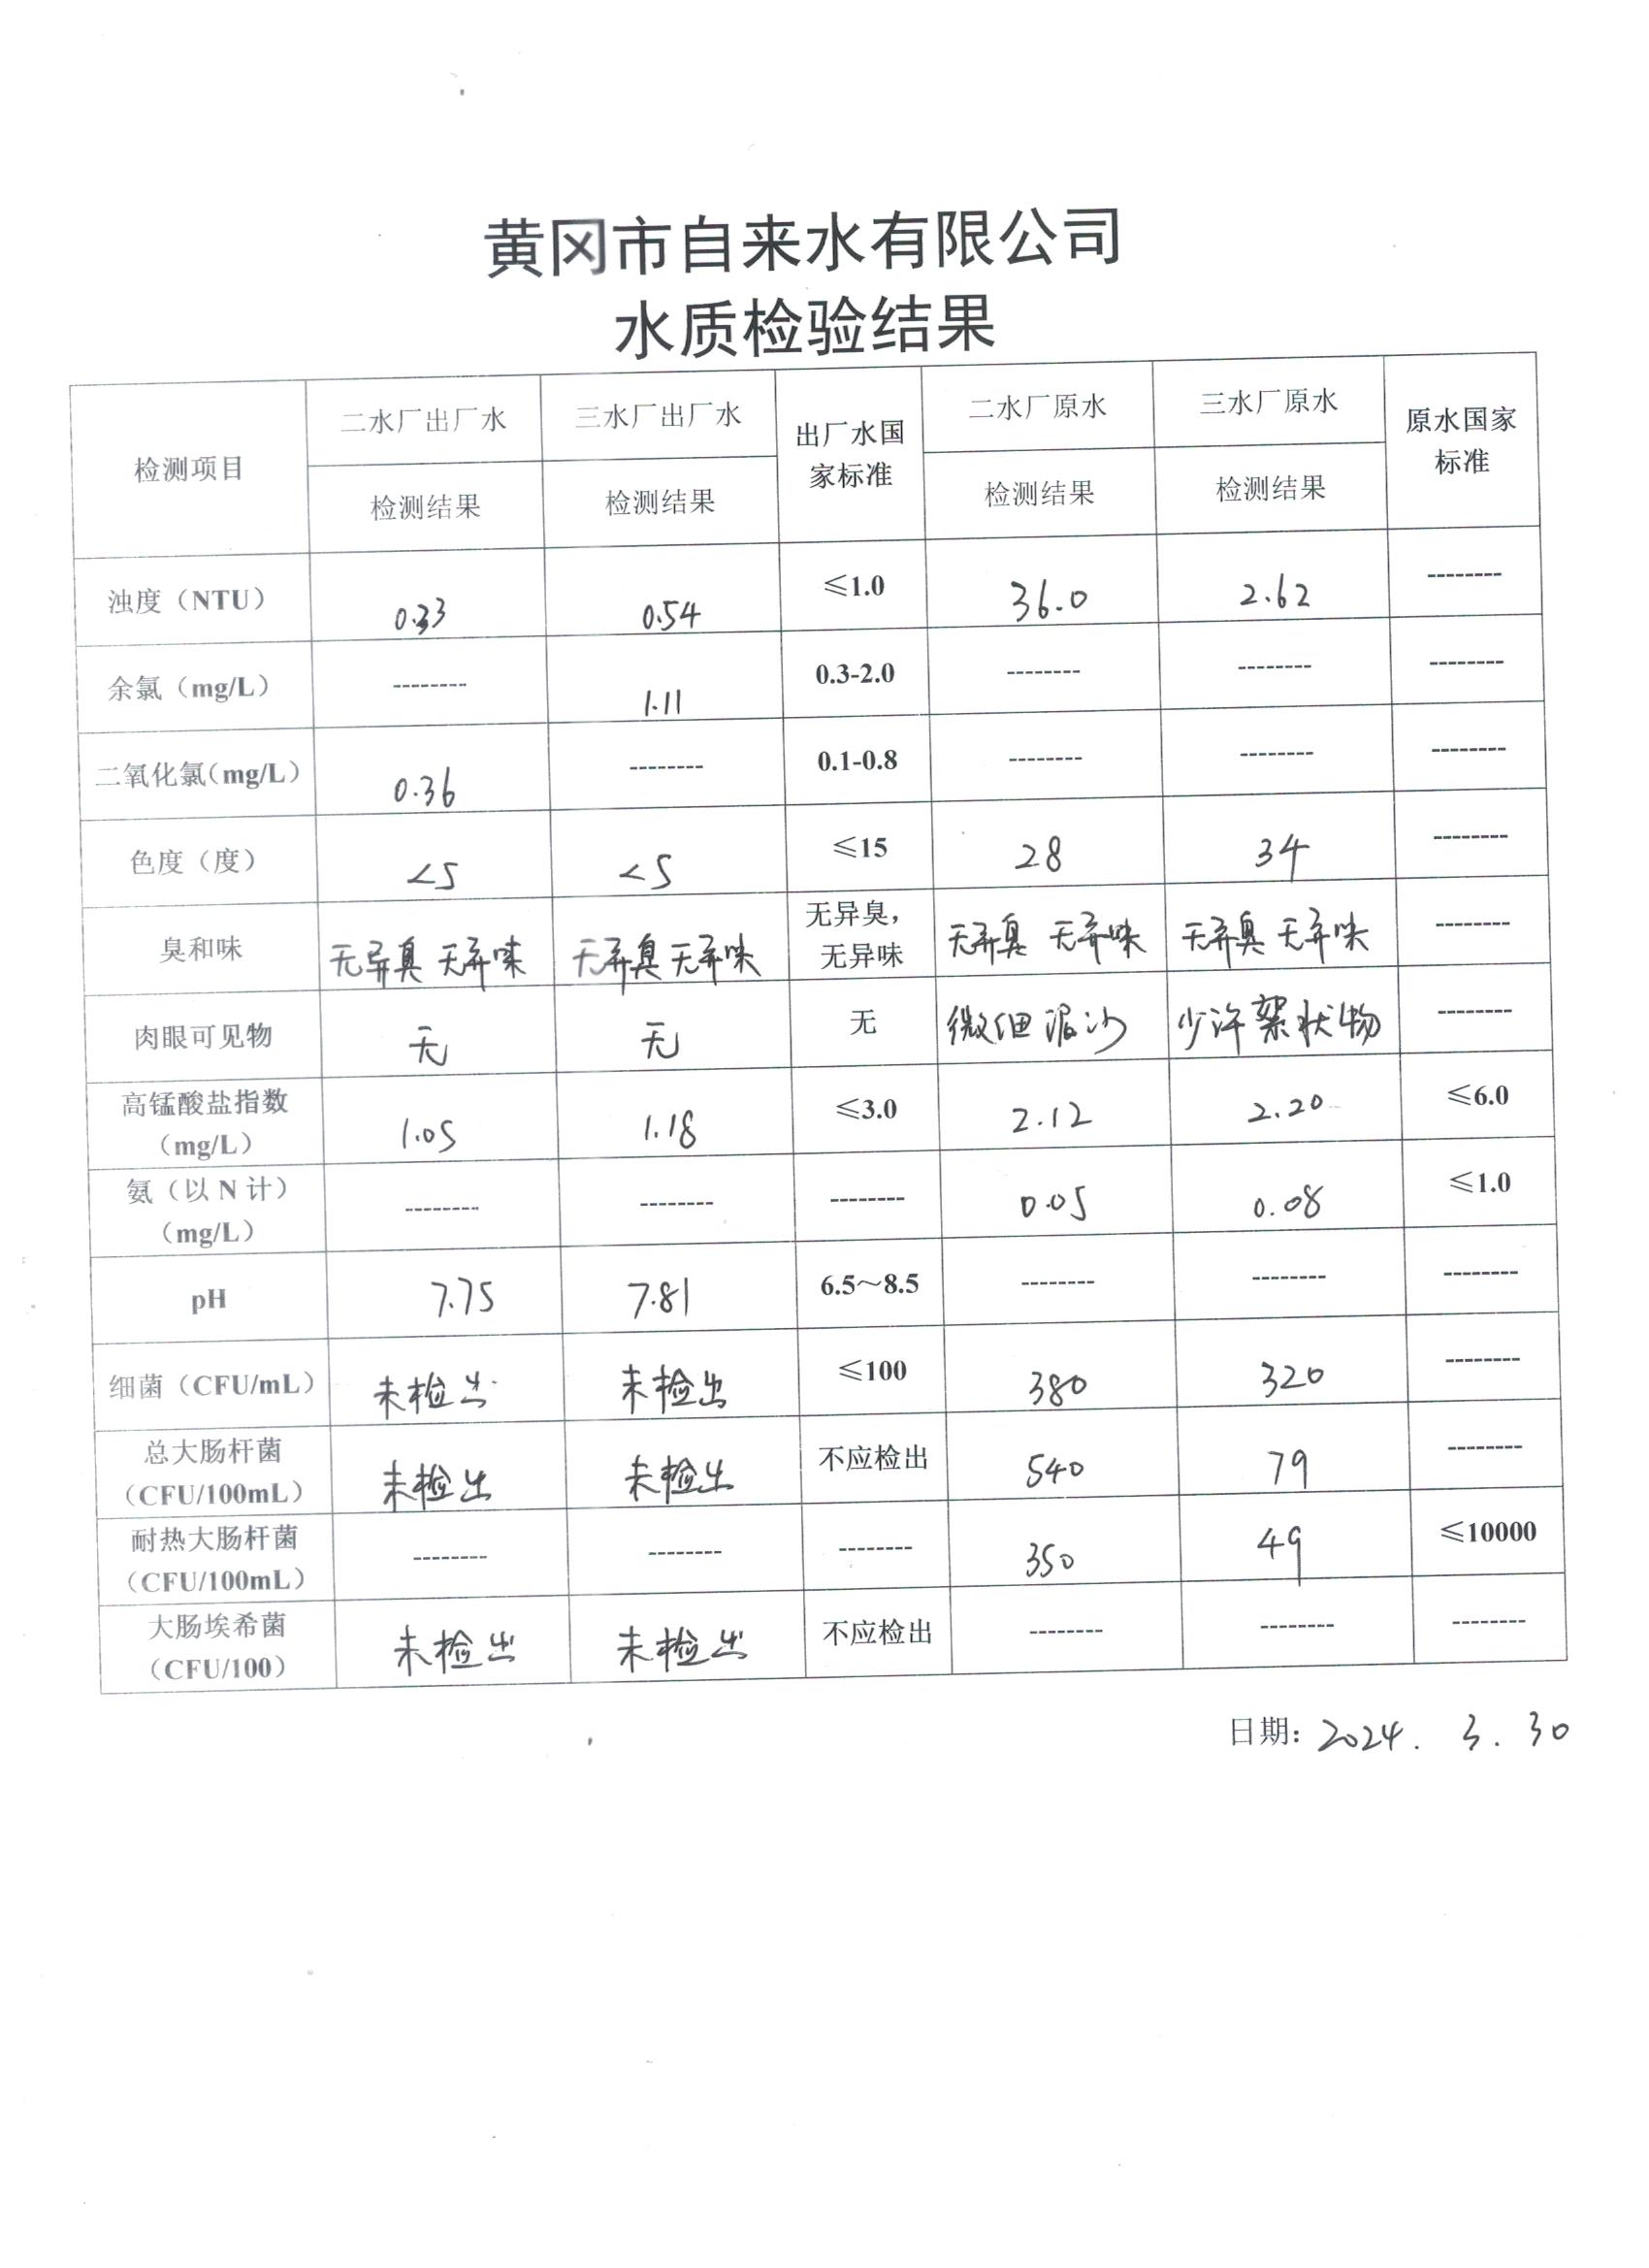 黄冈市自来水有限公司
水质检验结果
检测项目 二水厂出厂水 三水厂出厂水 出厂水国家标准 二水厂原水 三水厂原水 原水国家标准
检测结果 检测结果 检测结果 检测结果
浊度（NTU） 0.33 0.54 ≤1.0 36.0 2.62 --------
余氯（mg/L） -------- 1.11 0.3-2.0 -------- -------- --------
二氧化氯（mg/L） 0.36 -------- 0.1-0.8 -------- -------- --------
色度（度） <5 <5 ≤15 28 34 --------
臭和味 无异臭 无异味 无异臭 无异味 无异臭，无异味 无异臭 无异味 无异臭 无异味 --------
肉眼可见物 无 无 无 微细泥沙 少许絮状物 --------
高锰酸盐指数（mg/L） 1.05 1.18 ≤3.0 2.12 2.20 ≤6.0
氨（以 N 计）（mg/L） -------- -------- -------- 0.05 0.08 ≤1.0
pH 7.75 7.81 6.5～8.5 -------- -------- --------
细菌（CFU/mL） 未检出 未检出 ≤100 380 320 --------
总大肠杆菌（CFU/100mL） 未检出 未检出 不应检出 540 79 --------
耐热大肠杆菌（CFU/100mL） -------- -------- -------- 350 49 ≤10000
大肠埃希菌（CFU/100） 未检出 未检出 不应检出 -------- -------- --------
日期: 2024. 3. 30